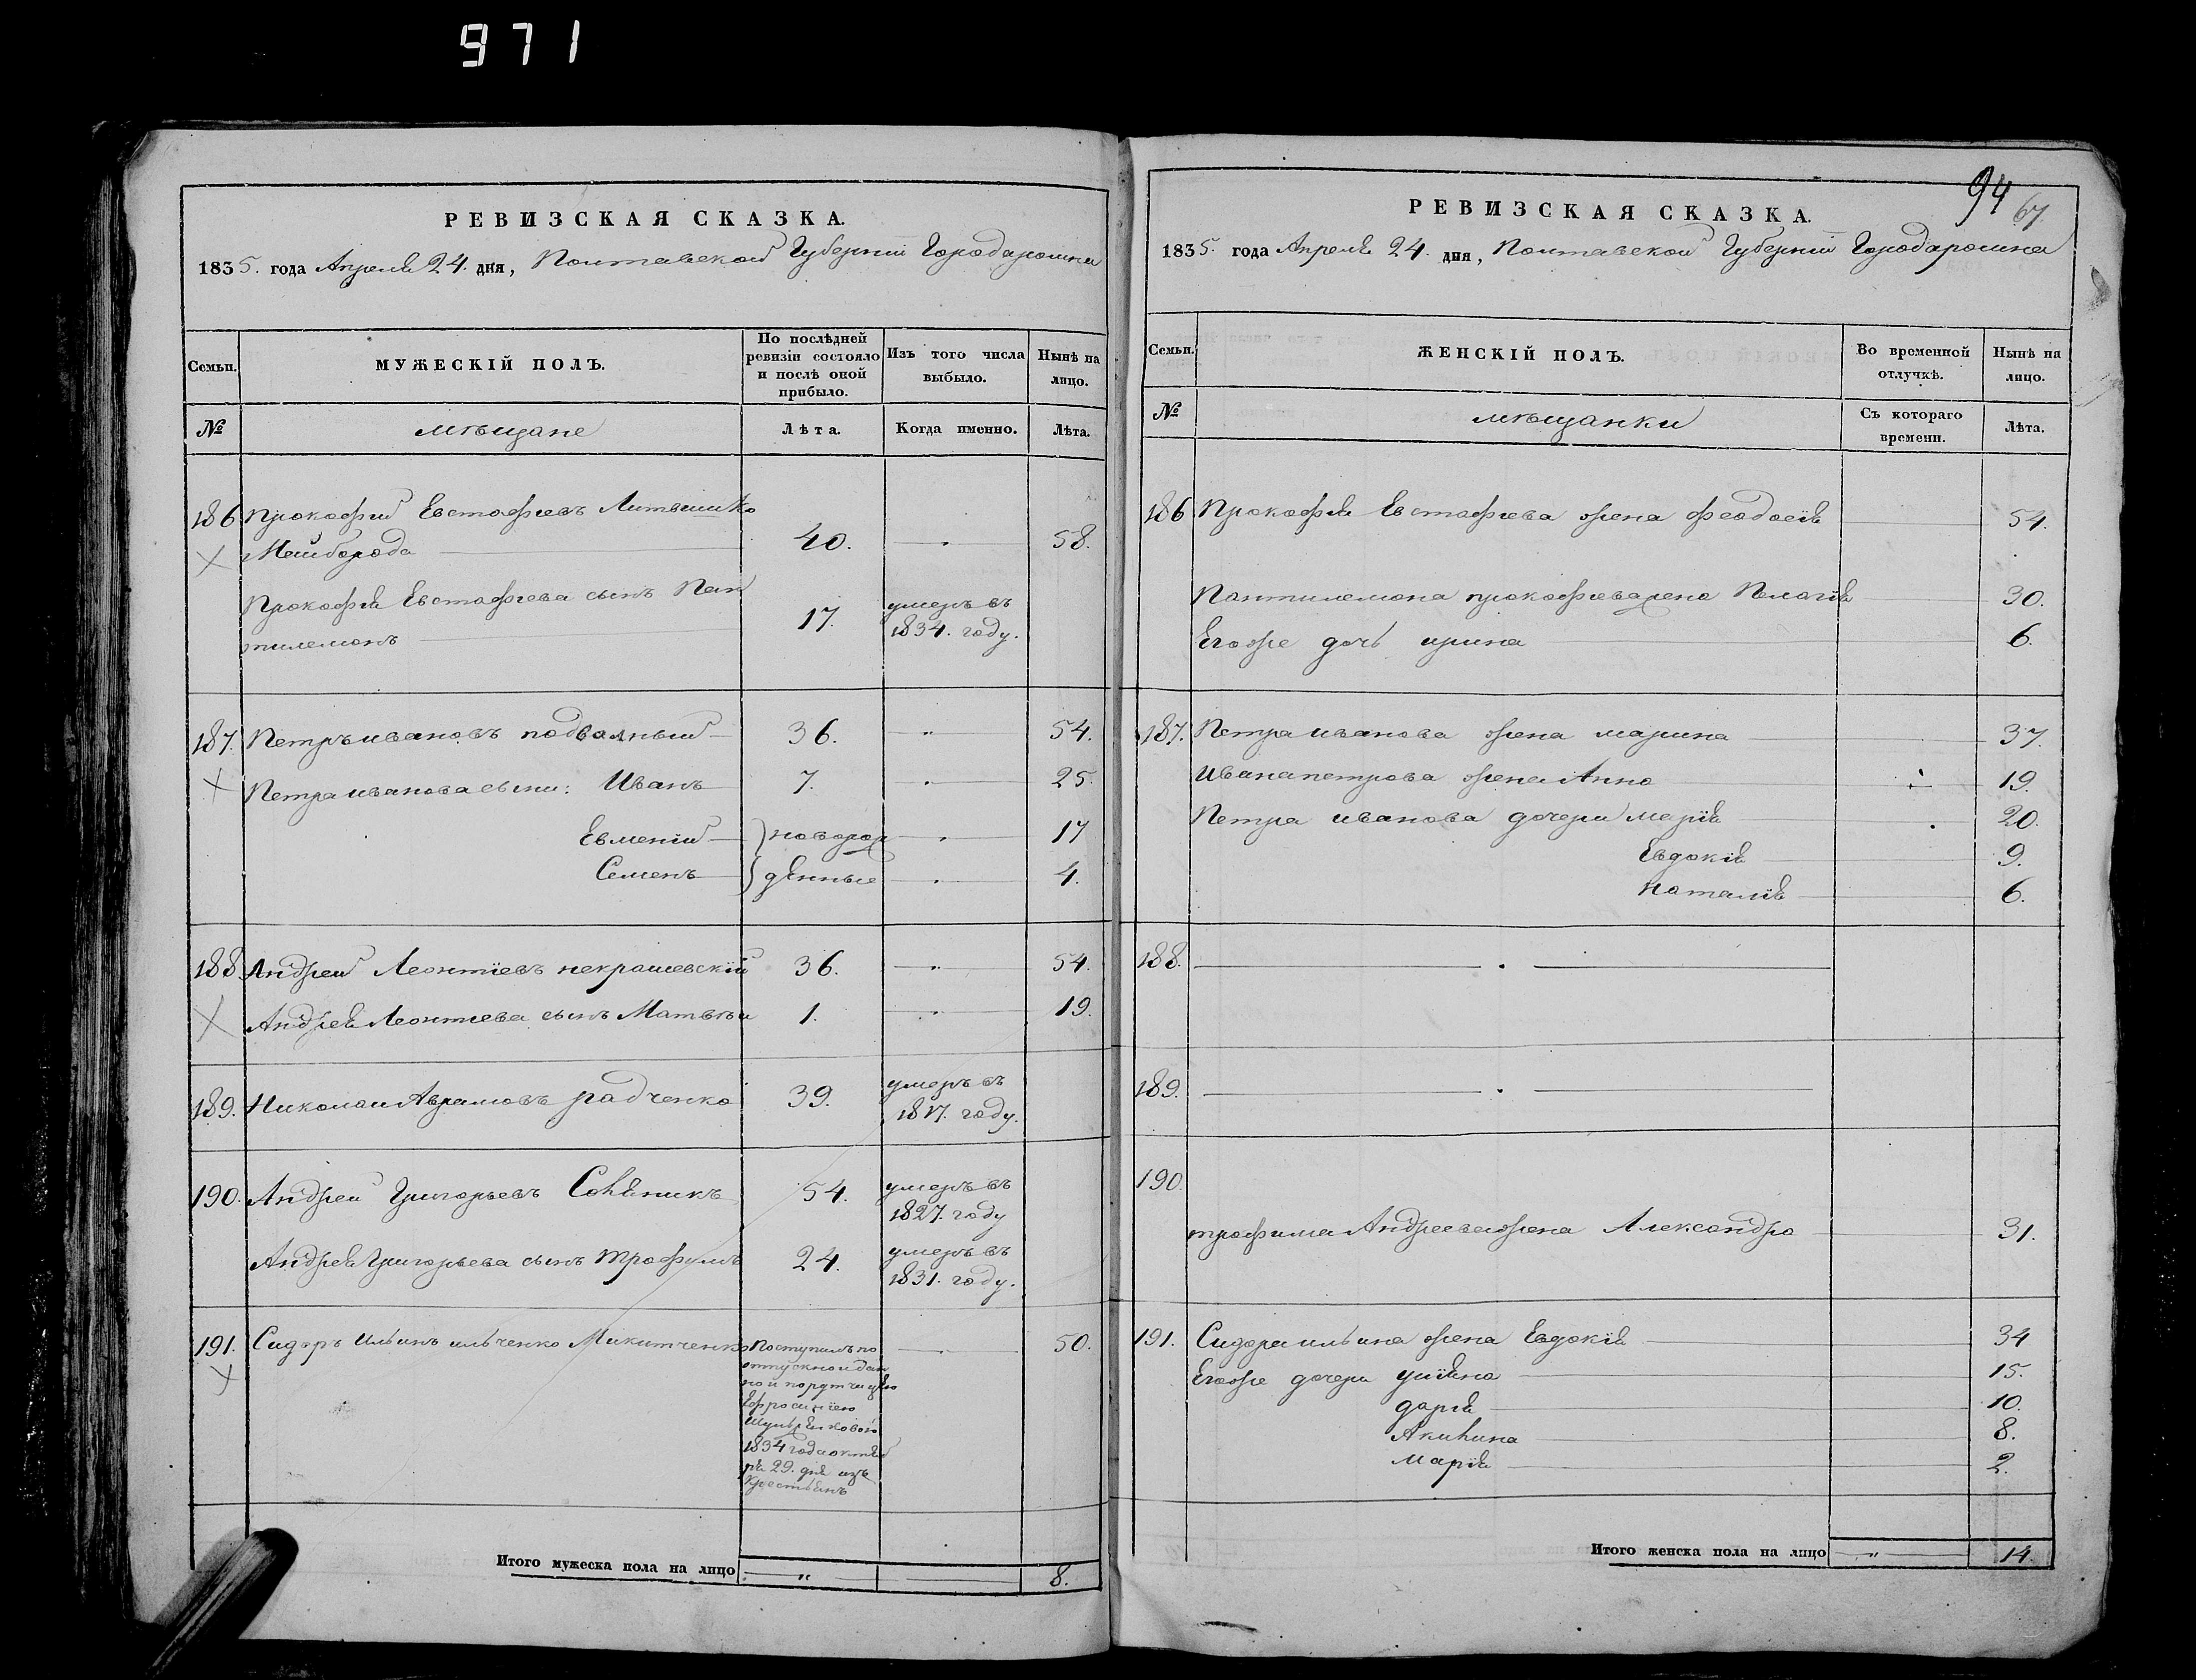 971
РЕВИЗСКАЯ СКАЗКА.
1835. года Апреля 24. дня, Полтавской Губернии Города ромна
Семьи.
МУЖЕСКІЙ ПОЛЪ.
По послѣдней ревизіи состояло и послѣ оной прибыло.
Изъ того числа выбыло.
Нынѣ на лицо.
№
мѣщане
Лѣта.
Когда именно.
Лѣта.
186 Прокофий Евстафиевъ Литвинко
Майборода 40. " 58.
Прокофия Евстафиева сынъ Пан
тилемонъ 17. умеръ въ 1834. году.
187. Петръ ивановъ подвалный 36. " 54.
Петра иванова сыни: Иванъ 7. " 25.
Евмений } новорож " 17
Семенъ } денные " 4.
188. Андрей Леонтиевъ некрашевский 36. " 54.
Андрея Леонтиева сынъ Матвѣи 1. " 19.
189. Николаи Аврамовъ радченко 39. умеръ въ 1817. году.
190. Андреи Григорьевъ 54. умеръ въ 1827. году
Андрея Григорьева сынъ трофимъ 24. умеръ въ 1831. году.
191. Сидоръ Ильинъ ильченко Микитченко " 50.
Поступилъ по
отпускной дан
ной порутчицею
Ефросиниею
1834 года октяб
ря 29. дня изъ
Крестьянъ
Итого мужеска пола на лицо " 8.
94
67
РЕВИЗСКАЯ СКАЗКА.
1835. года Апреля 24. дня, Полтавской Губернии Города ромна
Семьи.
ЖЕНСКІЙ ПОЛЪ.
Во временной отлучкѣ.
Нынѣ на лицо.
№
мѣщанки
Съ котораго времени.
Лѣта.
186 Прокофия Евстафиева жена феодосия 54.
Пантилемона прокофиева жена Пелагия 30.
Егоже дочь ирина 6.
187. Петра иванова жена марина 37.
Ивана петрова жена Анна 19.
Петра иванова дочери мария 20.
Евдокия 9.
Наталия 6.
188.
189.
190.
трофима Андреева жена Александра 31.
191. Сидора ильина жена Евдокия 34
Егоже дочери улияна 15.
дария 10.
Акилина 8.
Мария 2.
Итого женска пола на лицо " 14.